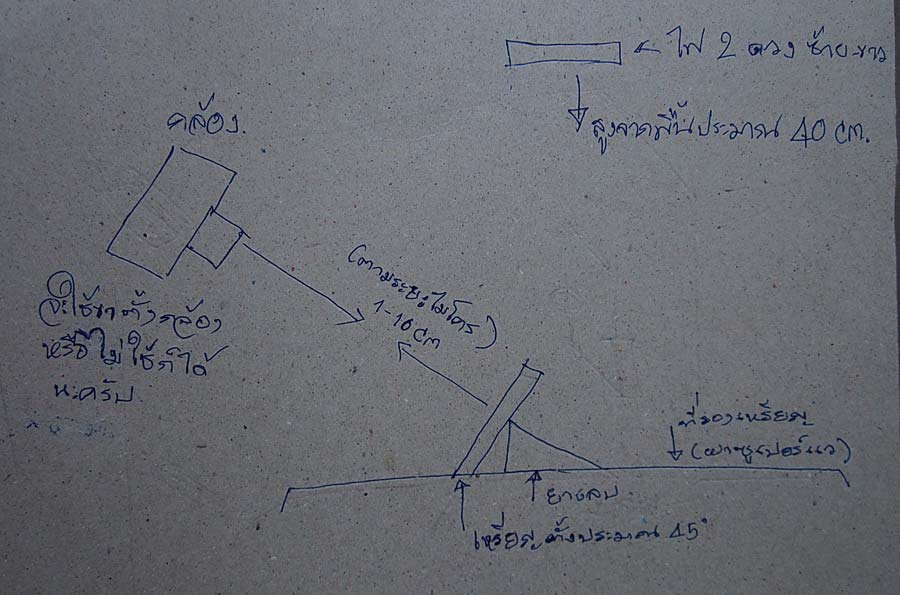 ← ไฟ 2 ดวง ซ้าย-ขวา
สูงจากพื้นประมาณ 40 cm.
กล้อง.
(ตามระยะไมโคร)
1-10 cm
จะใช้ขาตั้งกล้อง
หรือไม่ใช้ก็ได้
นะครับ
ที่รองเหรียญ
(ฝาซุปเปอร์แวร์)
ยางลบ
เหรียญตั้งประมาณ 45°